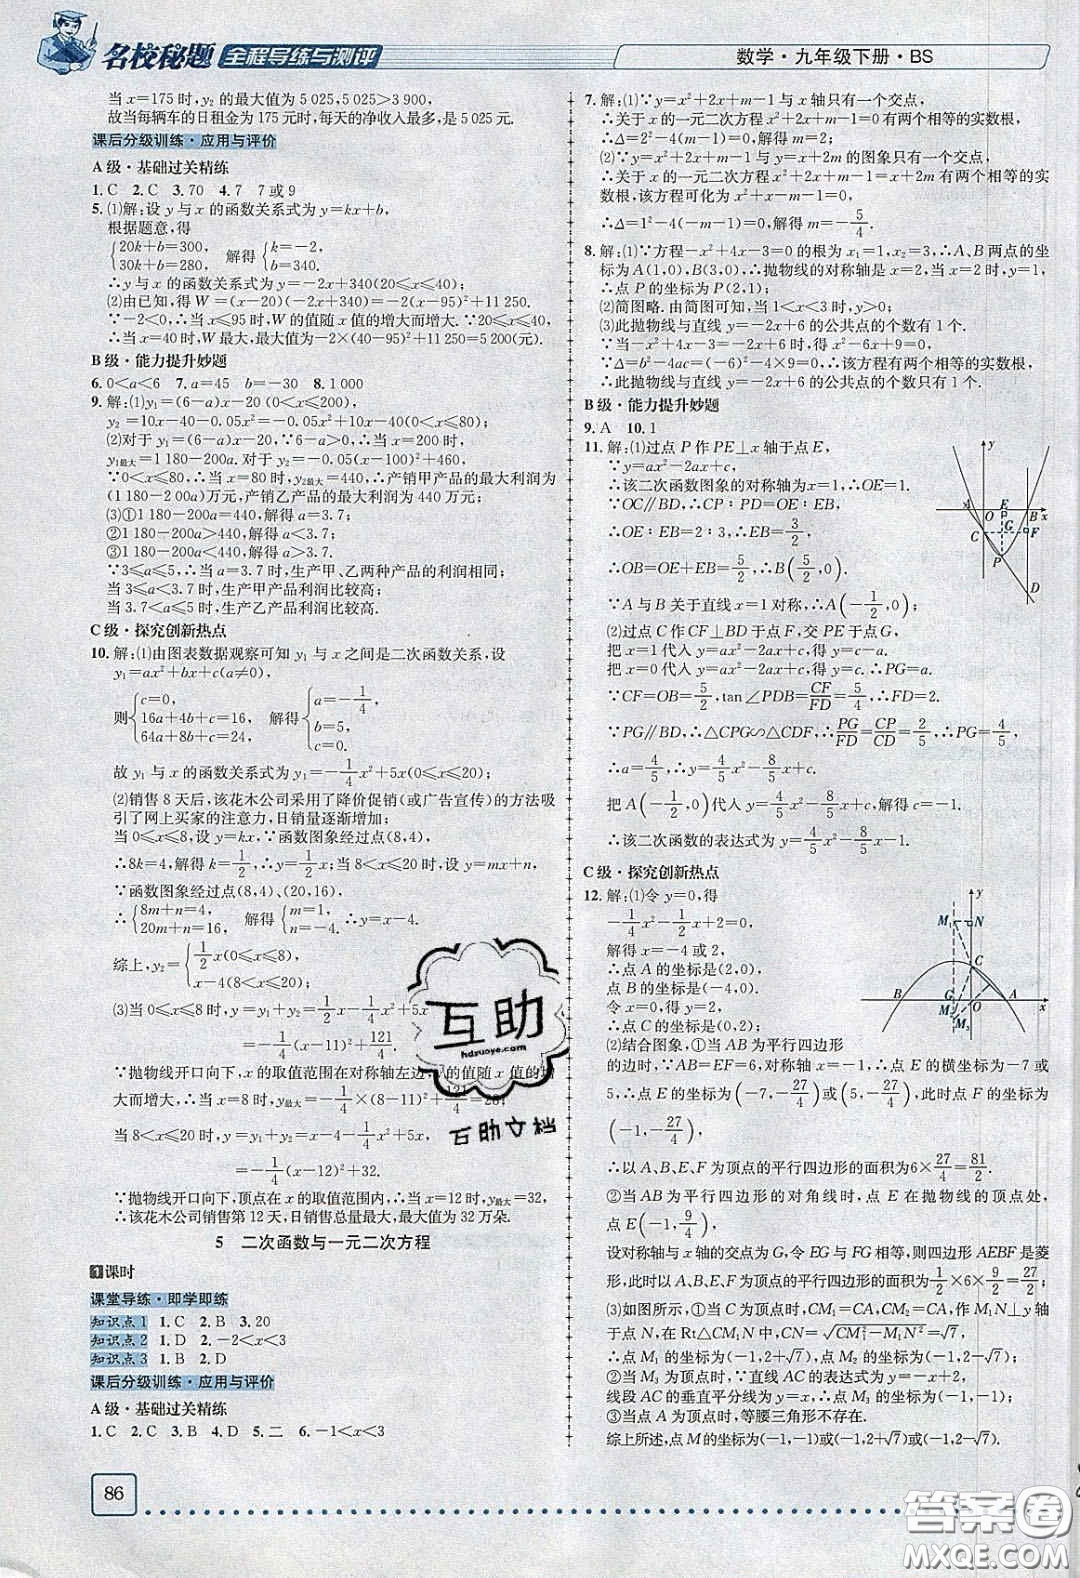 名校秘题 全程导练与测评
数学·九年级下册·BS
当 x=175 时,y₂ 的最大值为 5 025,5 025>3 900,
故当每辆车的日租金为 175 元时,每天的净收入最多,是 5 025 元.
课后分级训练·应用与评价
A 级·基础过关精练
1. C 2. C 3. 70 4. 7 7 或 9
5. (1)解:设 y 与 x 的函数关系式为 y=kx+b,
根据题意,得
{20k+b=300, 30k+b=280, 解得 {k=-2, b=340.
∴y 与 x 的函数关系式为 y=-2x+340(20≤x≤40);
(2)由已知,得 W=(x-20)(-2x+340)=-2(x-95)²+11 250.
∵-2<0,∴当 x≤95 时,W 的值随 x 值的增大而增大. ∵20≤x≤40,
∴当 x=40 时,W最大,最大值为-2×(40-95)²+11 250=5 200(元).
B 级·能力提升妙题
6. 0<a<6 7. a=45 b=-30 8. 1 000
9. 解:(1)y₁=(6-a)x-20(0<x≤200),
y₂=10x-40-0.05x²=-0.05x²+10x-40(0<x≤80);
(2)对于 y₁=(6-a)x-20,∵6-a>0,∴当 x=200 时,
y₁最大=1 180-200a. 对于 y₂=-0.05(x-100)²+460,
∵0<x≤80,∴当 x=80 时,y₂最大=440,∴产销甲产品的最大利润为
(1 180-200a)万元,产销乙产品的最大利润为 440 万元;
(3)①1 180-200a=440,解得 a=3.7;
②1 180-200a>440,解得 a<3.7;
③1 180-200a<440,解得 a>3.7.
∵3≤a≤5,∴当 a=3.7 时,生产甲、乙两种产品的利润相同;
当 3≤a<3.7 时,生产甲产品利润比较高;
当 3.7<a≤5 时,生产乙产品利润比较高.
C 级·探究创新热点
10. 解:(1)由图表数据观察可知 y₁ 与 x 之间是二次函数关系,设
y₁=ax²+bx+c(a≠0),
则{c=0, 16a+4b+c=16, 64a+8b+c=24, 解得{a=-1/4, b=5, c=0.
故 y₁ 与 x 的函数关系式为 y₁=-1/4x²+5x(0≤x≤20);
(2)销售 8 天后,该花木公司采用了降价促销(或广告宣传)的方法吸
引了网上买家的注意力,日销量逐渐增加;
当 0≤x≤8,设 y=kx,∵函数图象经过点(8,4),
∴8k=4,解得 k=1/2,∴y=1/2x;当 8<x≤20 时,设 y=mx+n,
∵函数图象经过点(8,4)、(20,16),
∴{8m+n=4, 20m+n=16, 解得{m=1, n=-4. ∴y=x-4.
综上,y₂={1/2x(0≤x≤8), x-4(8<x≤20);
(3)当 0≤x≤8 时,y=y₁+y₂=1/2x-1/4x²+5x
=-1/4(x-11)²+121/4.
∵抛物线开口向下,x 的取值范围在对称轴左边 的值随 x 值的
大而增大,∴当 x=8 时,y最大=-1/4×(8-11)²+121/4=28;
当 8<x≤20 时,y=y₁+y₂=x-4-1/4x²+5x,
=-1/4(x-12)²+32.
∵抛物线开口向下,顶点在 x 的取值范围内,∴当 x=12 时,y最大=32,
∴该花木公司销售第 12 天,日销售总量最大,最大值为 32 万朵.
5 二次函数与一元二次方程
1课时
课堂导练·即学即练
知识点 1 1. C 2. B 3. 20
知识点 2 1. D 2. -2<x<3
知识点 3 1. B 2. D
课后分级训练·应用与评价
A 级·基础过关精练
1. C 2. C 3. B 4. D 5. 二 6. -1<x<3
86
7. 解:(1)∵y=x²+2x+m-1 与 x 轴只有一个交点,
∴关于 x 的一元二次方程 x²+2x+m-1=0 有两个相等的实数根,
∴Δ=2²-4(m-1)=0,解得 m=2;
(2)∵y=x+2m 与 y=x²+2x+m-1 的图象只有一个交点,
∴关于 x 的一元二次方程 x²+2x+m-1=x+2m 有两个相等的实
数根,该方程可化为 x²+x-m-1=0,
∴Δ=1²-4(-m-1)=0,解得 m=-5/4.
8. 解:(1)∵方程-x²+4x-3=0 的根为 x₁=1,x₂=3,∴A、B 两点的坐
标为 A(1,0),B(3,0),∴抛物线的对称轴是 x=2,当 x=2 时,y=1,
∴点 P 的坐标为 P(2,1);
(2)简图略. 由简图可知,当 1<x<3 时,y>0;
(3)此抛物线与直线 y=-2x+6 的公共点的个数有 1 个.
∵-x²+4x-3=-2x+6 可化为 x²-6x+9=0,
∵Δ=b²-4ac=(-6)²-4×9=0,∴该方程有两个相等的实数根,
∴此抛物线与直线 y=-2x+6 的公共点的个数只有 1 个.
B 级·能力提升妙题
9. A 10. 1
11. 解:(1)过点 P 作 PE⊥x 轴于点 E,
∵y=ax²-2ax+c,
∴该二次函数图象的对称轴为 x=1. ∴OE=1.
∵OC∥BD,∴CP∶PD=OE∶EB,
∴OE∶EB=2∶3,∴EB=3/2,
∴OB=OE+EB=5/2,∴B(5/2,0);
∵A 与 B 关于直线 x=1 对称,∴A(-1/2,0);
(2)过点 C 作 CF⊥BD 于点 F,交 PE 于点 G,
把 x=1 代入 y=ax²-2ax+c,得 y=c-a,
把 x=0 代入 y=ax²-2ax+c,得 y=c. ∴PG=a.
∵CF=OB=5/2,tan∠PDB=CF/FD=5/4,∴FD=2.
∵PG∥BD,∴△CPG∽△CDF,∴PG/FD=CP/CD=2/5,∴PG=4/5
∴a=4/5,∴y=4/5x²-8/5x+c,
把 A(-1/2,0)代入 y=4/5x²-8/5x+c,解得 c=-1.
∴该二次函数的表达式为 y=4/5x²-8/5x-1.
y A E O B x G C F P D
C 级·探究创新热点
12. 解:(1)令 y=0,得
-1/4x²-1/2x+2=0,
解得 x=-4 或 2,
∴点 A 的坐标是(2,0),
点 B 的坐标是(-4,0).
令 x=0,得 y=2,
∴点 C 的坐标是(0,2);
(2)结合图象,①当 AB 为平行四边形
的边时,∵AB=EF=6,对称轴 x=-1,∴点 E 的横坐标为-7 或
5,∴点 E 的坐标为(-7,-27/4)或(5,-27/4),此时点 F 的坐标为
(-1,-27/4),
∴以 A、B、E、F 为顶点的平行四边形的面积为 6×27/4=81/2.
②当 AB 为平行四边形的对角线时,点 E 在抛物线的顶点处,
点 E(-1,9/4),
设对称轴与 x 轴的交点为 G,令 EG 与 FG 相等,则四边形 AEBF 是菱
形,此时以 A、B、E、F 为顶点的平行四边形的面积为1/2×6×9/2=27/2;
(3)如图所示,①当 C 为顶点时,CM₁=CA,CM₂=CA,作 M₁N⊥y 轴
于点 N,在 Rt△CM₁N 中,CN=√CM₁²-M₁N²=√7,
∴点 M₁ 的坐标为(-1,2+√7),点 M₂ 的坐标为(-1,2-√7);
②当 M₃ 为顶点时,∵直线 AC 的表达式为 y=-x+2,
线段 AC 的垂直平分线为 y=x,∴点 M₃ 的坐标为(-1,-1);
③当点 A 为顶点时,等腰三角形不存在.
综上所述,点 M 的坐标为(-1,-1)或(-1,2+√7)或(-1,2-√7).
y M₁ N C B G O A x M₂ M₃
互助
hdzuoye.com
互助文档
答案圈
MXQE.COM